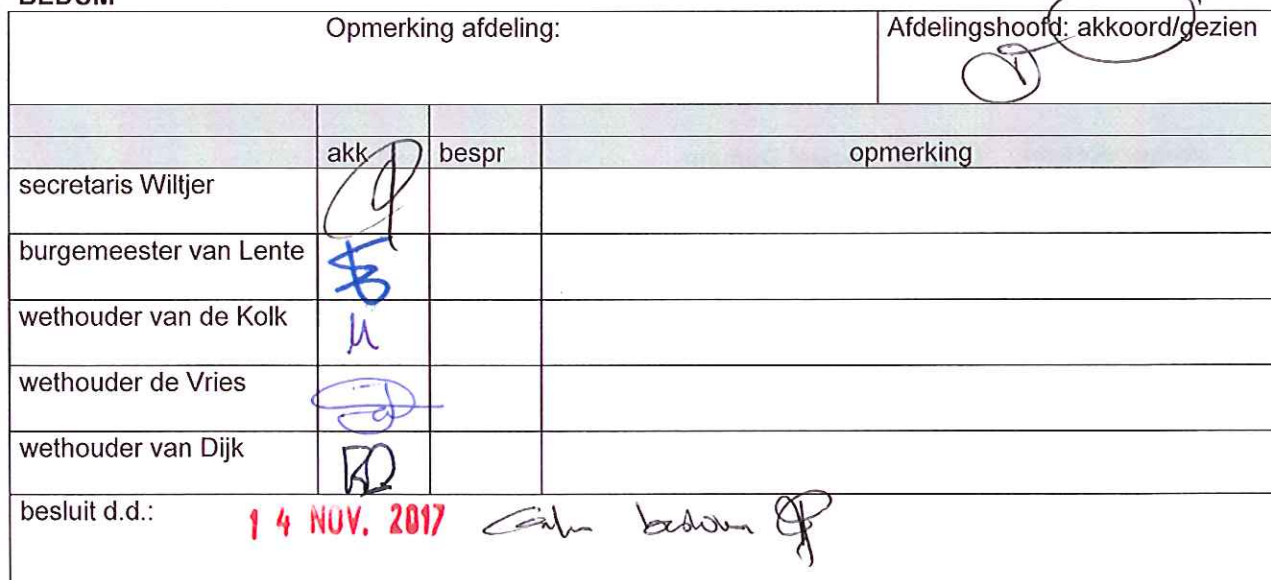 BEDUM
Opmerking afdeling:
Afdelingshoofd: akkoord/gezien
akk bespr opmerking
secretaris Wiltjer
burgemeester van Lente
wethouder van de Kolk
wethouder de Vries
wethouder van Dijk
besluit d.d.: 14 NOV. 2017